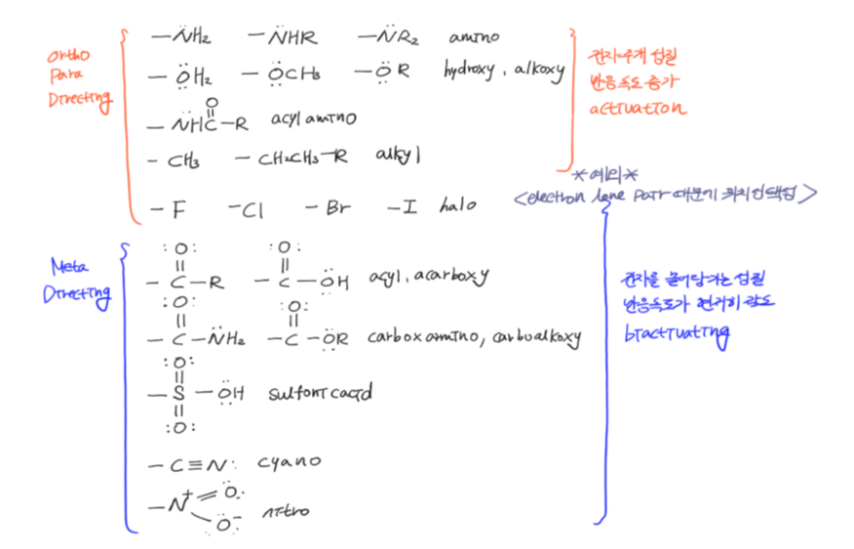 Ortho
Para
Directing
—N̈H₂ —N̈HR —N̈R₂ amino
—ÖH₂ —ÖCH₃ —ÖR hydroxy, alkoxy
—N̈HC(=O)—R acyl amino
—CH₃ —CH₂CH₃—R alkyl
—F —Cl —Br —I halo
전자주개 성질
반응속도 증가
activation
*예외*
<electron lone pair 때문기 위치선택성>
Meta
Directing
—C(=O)—R —C(=O)—ÖH acyl, acarboxy
—C(=O)—N̈H₂ —C(=O)—ÖR carboxamino, carboalkoxy
—S(=O)(=O)—ÖH sulfonic acid
—C≡N: cyano
—N⁺(=O)—O⁻ nitro
전자를 끌어당기는 성질
반응속도가 현저히 감소